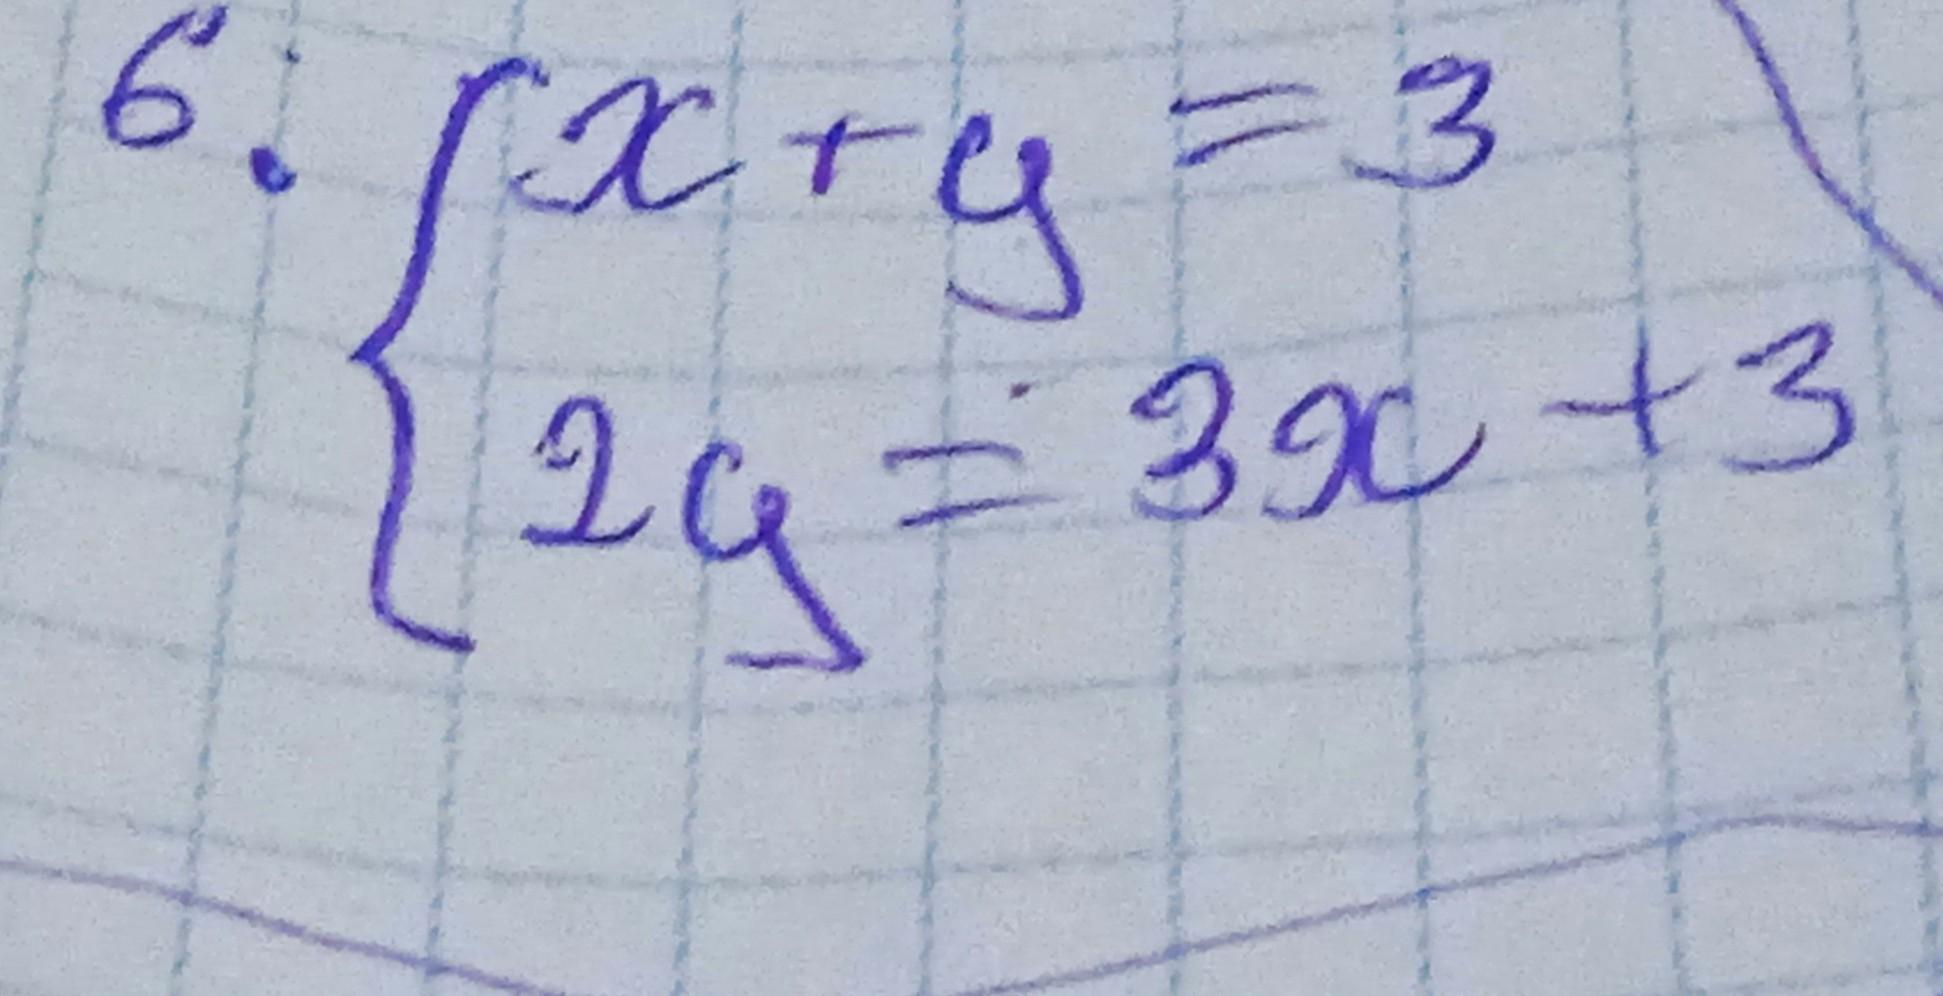 6. { x + y = 3
2y = 3x + 3